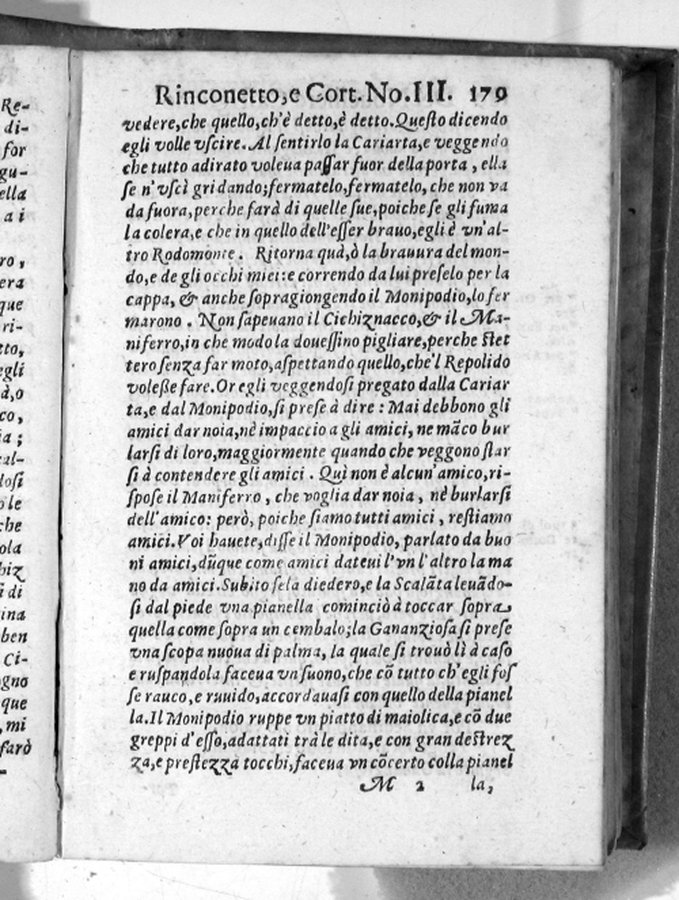 Rinconetto, e Cort. No. III. 179
vedere, che quello, ch'è detto, è detto. Questo dicendo
egli volle vscire. Al sentirlo la Cariarta, e veggendo
che tutto adirato voleua passar fuor della porta, ella
se n'vscì gridando; fermatelo, fermatelo, che non va
da fuora, perche farà di quelle sue, poiche se gli fuma
la colera, e che in quello dell'esser brauo, egli è vn'al-
tro Rodomonte. Ritorna quà, ò la brauura del mon-
do, e de gli occhi miei: e correndo da lui preselo per la
cappa, & anche sopragiongendo il Monipodio, lo fer
marono. Non sapeuano il Cichiznacco, & il Ma-
niferro, in che modo la douessino pigliare, perche stet
tero senza far moto, aspettando quello, che'l Repolido
volesse fare. Or egli veggendosi pregato dalla Cariar
ta, e dal Monipodio, si prese à dire: Mai debbono gli
amici dar noia, nè impaccio a gli amici, ne mãco bur
larsi di loro, maggiormente quando che veggono star
si à contendere gli amici. Quì non è alcun'amico, ri-
spose il Maniferro, che voglia dar noia, nè burlarsi
dell'amico: però, poiche siamo tutti amici, restiamo
amici. Voi hauete, disse il Monipodio, parlato da buo
ni amici, dũque come amici dateui l'vn l'altro la ma
no da amici. Subito sela diedero, e la Scalãta leuãdo-
si dal piede vna pianella cominciò à toccar sopra
quella come sopra un cembalo; la Gananziosa si prese
vna scopa nuoua di palma, la quale si trouò lì à caso
e ruspandola faceua vn suono, che cõ tutto ch'egli fos
se rauco, e ruuido, accordauasi con quello della pianel
la. Il Monipodio ruppe vn piatto di maiolica, e cõ due
greppi d'esso, adattati trà le dita, e con gran destrez
za, e prestezza tocchi, faceua vn cõcerto colla pianel
M 2 la,